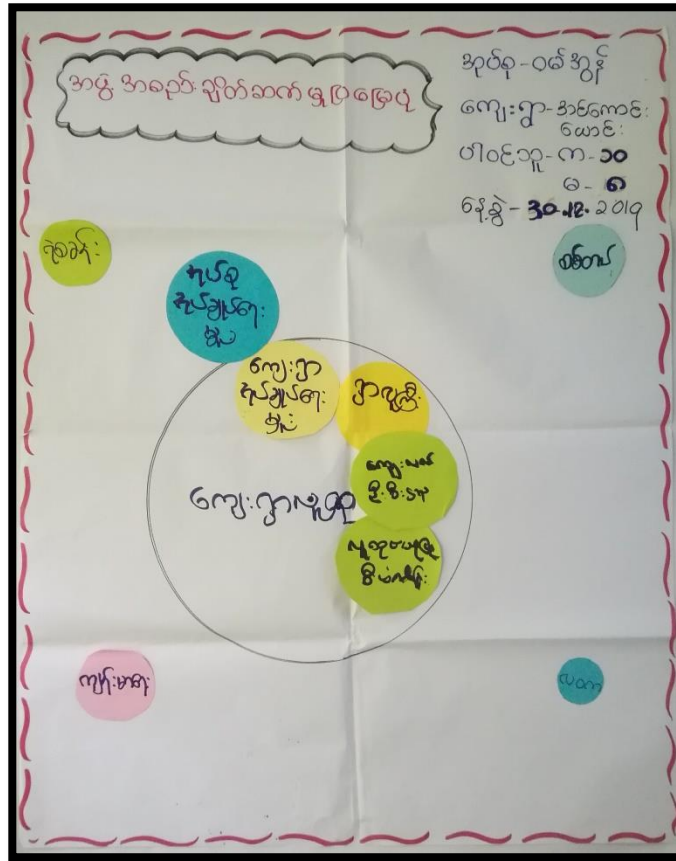 အဖွဲ့အစည်းချိတ်ဆက်မှုပြမြေပုံ
အုပ်စု - ဝမ်အွန်
ကျေးရွာ - အင်ကောင်း
ယောင်း
ပါဝင်သူ - က - ၁၀
မ - ၈
နေ့စွဲ - 30.12.2019
ရဲစခန်း
စစ်တပ်
အုပ်စု
အုပ်ချုပ်ရေး
မှူး
ကျေးရွာ
အုပ်ချုပ်ရေး
မှူး
ရွာလူကြီး
ကျေးလက်
ဦးစီးဌာန
ကျေးရွာလူထု
လူထုဗဟိုပြု
စီမံကိန်း
ကျန်းမာရေး
လဝက